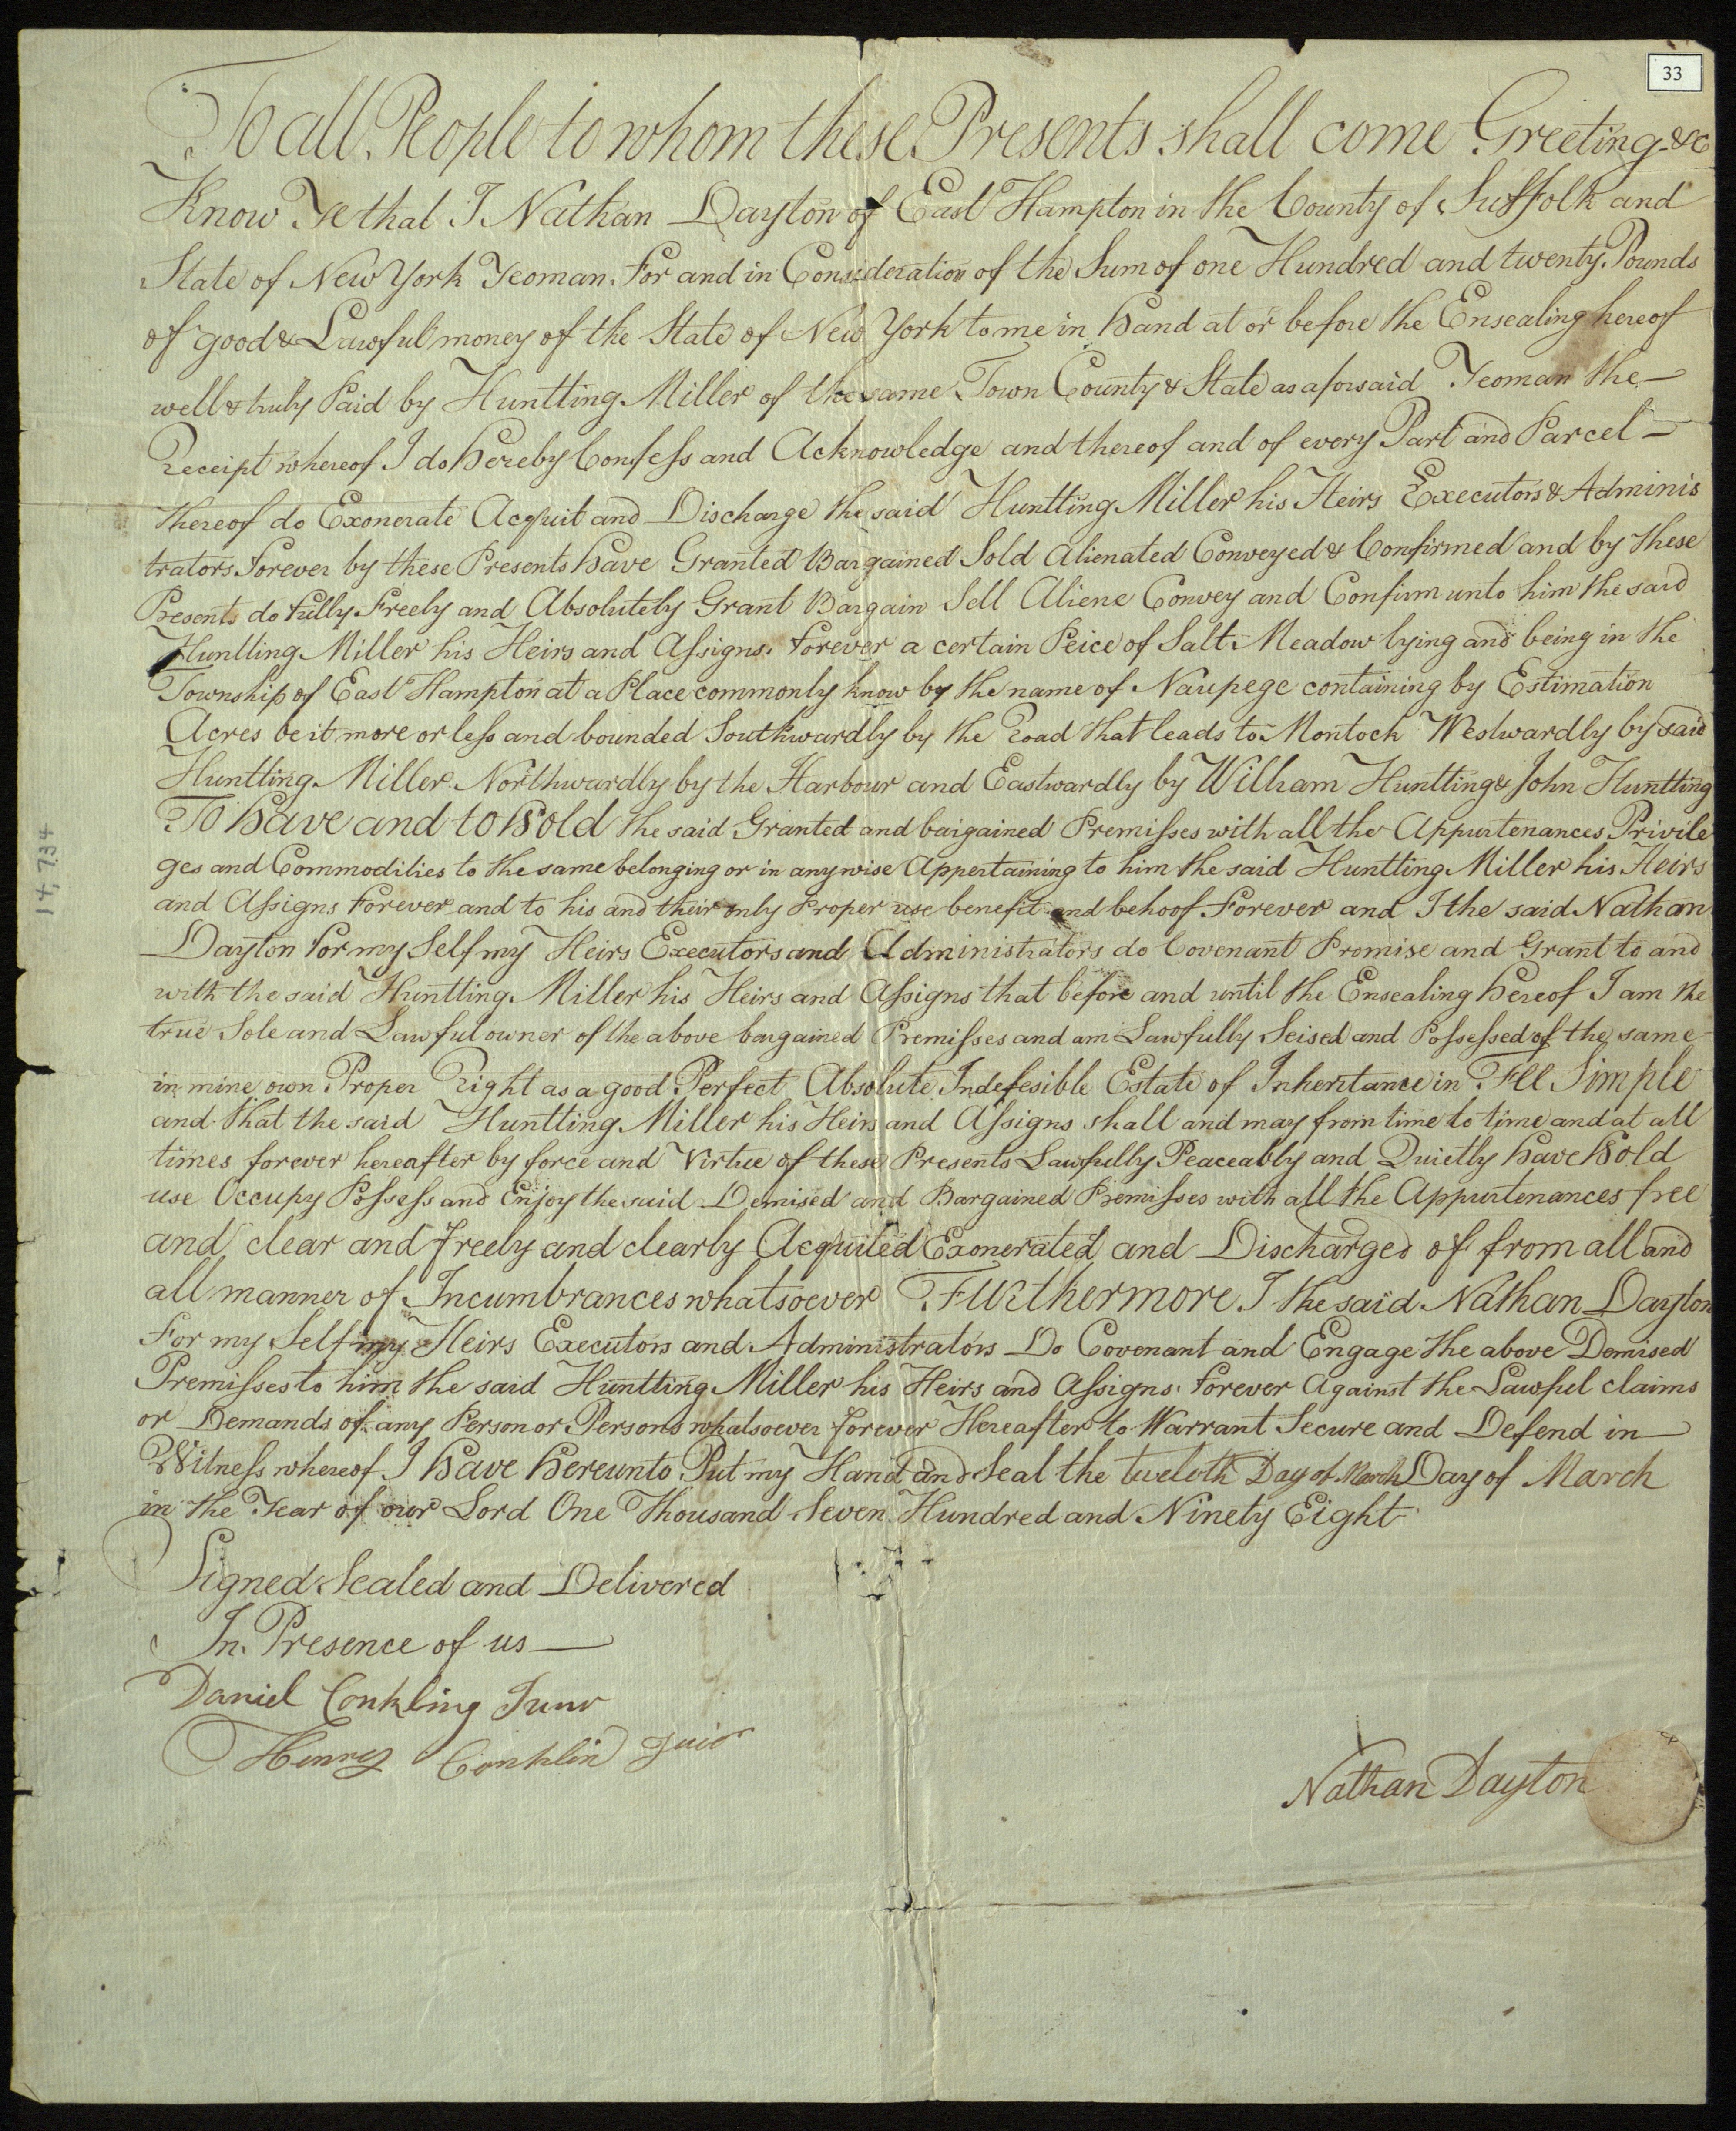 33
To all People to whom these Presents shall come Greeting &c
Know Ye that I Nathan Dayton of East Hampton in the County of Suffolk and
State of New York Yeoman For and in Consideration of the Sum of one Hundred and twenty Pounds
of good & Lawful money of the State of New York to me in hand at or before the Ensealing hereof
well & truly Paid by Huntting Miller of the same Town County & State as aforsaid Yeoman the —
Receipt whereof I do hereby Confess and Acknowledge and thereof and of every Part and Parcel —
thereof do Exonerate Acquit and Discharge the said Huntting Miller his Heirs Executors & Adminis
trators Forever by these Presents have Granted Bargained Sold Alienated Conveyed & Confirmed and by these
Presents do fully Freely and Absolutely Grant Bargain Sell Aliene Convey and Confirm unto him the said
Huntting Miller his Heirs and Assigns Forever a certain Peice of Salt Meadow lying and being in the
Township of East Hampton at a Place commonly know by the name of Naupege containing by Estimation
Acres be it more or less and bounded Southwardly by the Road that leads to Montock Westwardly by said
Huntting Miller Northwardly by the Harbour and Eastwardly by William Huntting & John Huntting
To have and to hold the said Granted and bargained Premisses with all the Appurtenances Privile
ges and Commodities to the same belonging or in anywise Appertaining to him the said Huntting Miller his Heirs
and Assigns Forever and to his and their only Proper use benefit and behoof Forever and I the said Nathan
Dayton For my Self my Heirs Executors and Administrators do Covenant Promise and Grant to and
with the said Huntting Miller his Heirs and Assigns that before and until the Ensealing hereof I am the
true Sole and Lawful owner of the above bargained Premisses and am Lawfully Seised and Possessed of the same
in mine own Proper Right as a good Perfect Absolute Indefesible Estate of Inheritance in Fee Simple
and that the said Huntting Miller his Heirs and Assigns shall and may from time to time and at all
times forever hereafter by force and Virtue of these Presents Lawfully Peaceably and Quietly have hold
use Occupy Possess and Enjoy the said Demised and Bargained Premisses with all the Appurtenances free
and clear and freely and clearly Acquited Exonerated and Discharged of from all and
all manner of Incumbrances whatsoever Furthermore I the said Nathan Dayton
For my Self my Heirs Executors and Administrators Do Covenant and Engage the above Demised
Premisses to him the said Huntting Miller his Heirs and Assigns Forever Against the Lawful claims
or Demands of any Person or Persons whatsoever forever Hereafter to Warrant Secure and Defend in —
Witness whereof I have hereunto Put my Hand and Seal the twelvth Day of March Day of March
in the Year of our Lord One Thousand Seven Hundred and Ninety Eight
Signed Sealed and Delivered
In Presence of us —
Daniel Conkling Junr
Henry Conklin Juir
Nathan Dayton
14,734